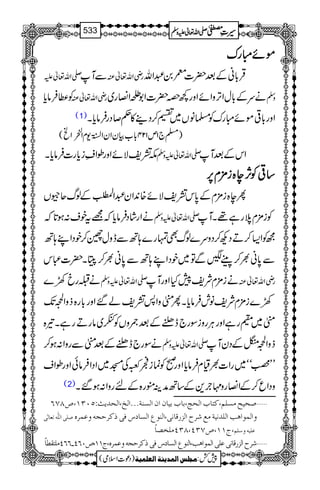 سیرتِ مصطفی صلی اللہ تعالیٰ علیہ وسلم
533
موئے مبارک
قربانی کے بعد حضرت معمر بن عبداللہ رضی اللہ تعالیٰ عنہ سے آپ صلی اللہ تعالیٰ علیہ
وسلم نے سر کے بال اتروائے اور کچھ حصہ حضرت ابو طلحہ انصاری رضی اللہ تعالیٰ عنہ کو عطا فرمایا
اور باقی موئے مبارک کو مسلمانوں میں تقسیم کر دینے کا حکم صادر فرمایا۔ (1)
(مسلم ج۱ ص۴۲۱ باب بیان ان السنۃ یوم النحر الخ)
اس کے بعد آپ صلی اللہ تعالیٰ علیہ وسلم مکہ تشریف لائے اور طواف زیارت فرمایا۔
ساقی کوثر چاہ زمزم پر
پھر چاہ زمزم کے پاس تشریف لائے خاندان عبدالمطلب کے لوگ حاجیوں
کو زمزم پلا رہے تھے۔ آپ صلی اللہ تعالیٰ علیہ وسلم نے ارشاد فرمایا کہ مجھے یہ خوف نہ ہوتا کہ
مجھ کو ایسا کرتے دیکھ کر دوسرے لوگ بھی تمہارے ہاتھ سے ڈول چھین کر خود اپنے ہاتھ
سے پانی بھر کر پینے لگیں گے تو میں خود اپنے ہاتھ سے پانی بھر کر پیتا۔ حضرت عباس
رضی اللہ تعالیٰ عنہ نے زمزم شریف پیش کیا اور آپ صلی اللہ تعالیٰ علیہ وسلم نے قبلہ رخ کھڑے
کھڑے زمزم شریف نوش فرمایا۔ پھر منیٰ واپس تشریف لے گئے اور بارہ ذوالحجہ تک
منیٰ میں مقیم رہے اور ہر روز سورج ڈھلنے کے بعد جمروں کو کنکری مارتے رہے۔ تیرہ
ذوالحجہ منگل کے دن آپ صلی اللہ تعالیٰ علیہ وسلم نے سورج ڈھلنے کے بعد منیٰ سے روانہ ہو کر
”محصب“ میں رات بھر قیام فرمایا اور صبح کو نماز فجر کعبہ کی مسجد میں ادا فرمائی اور طواف
وداع کر کے انصار و مہاجرین کے ساتھ مدینہ منورہ کے لئے روانہ ہو گئے۔ (2)
صحیح مسلم، کتاب الحج، باب بیان ان السنۃ...الخ، الحدیث:۱۳۰۵، ص۶۷۸
والمواہب اللدنیۃ مع شرح الزرقانی، النوع السادس فی ذکر حجہ وعمرہ صلی اللہ تعالٰی
علیہ وسلم، ج۱۱، ص۴۳۷،۴۳۸ ملخصاً
شرح الزرقانی علی المواہب، النوع السادس فی ذکر حجہ وعمرہ، ج۱۱، ص۴۶۰۔۴۶۶ ملتقطاً
پیش کش: مجلس المدینۃ العلمیۃ (دعوتِ اسلامی)